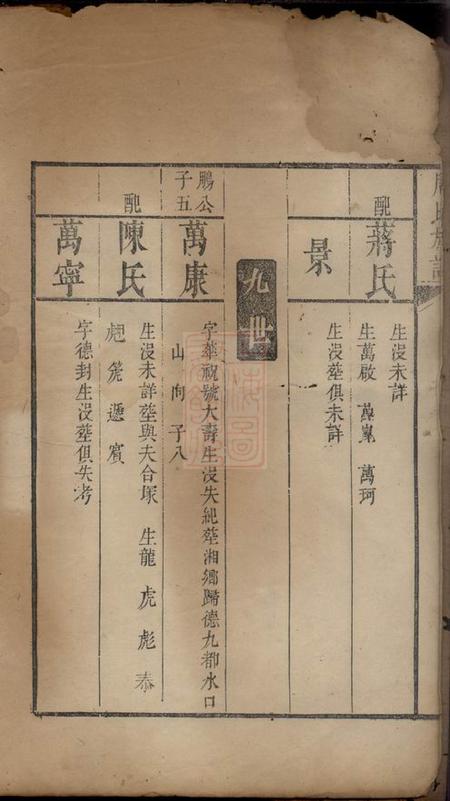 配
蔣氏
生沒未詳
生萬啟 萬嵬 萬珂
景
生沒塟俱未詳
九世
鵬公
子五
萬康
字華祝號大壽生沒失紀塟湘鄉歸德九都水口
山向 子八
配
陳氏
生沒未詳塟與夫合塚 生龍 虎 彪 泰
彪 遞 賓
萬寧
字德封生沒塟俱失考